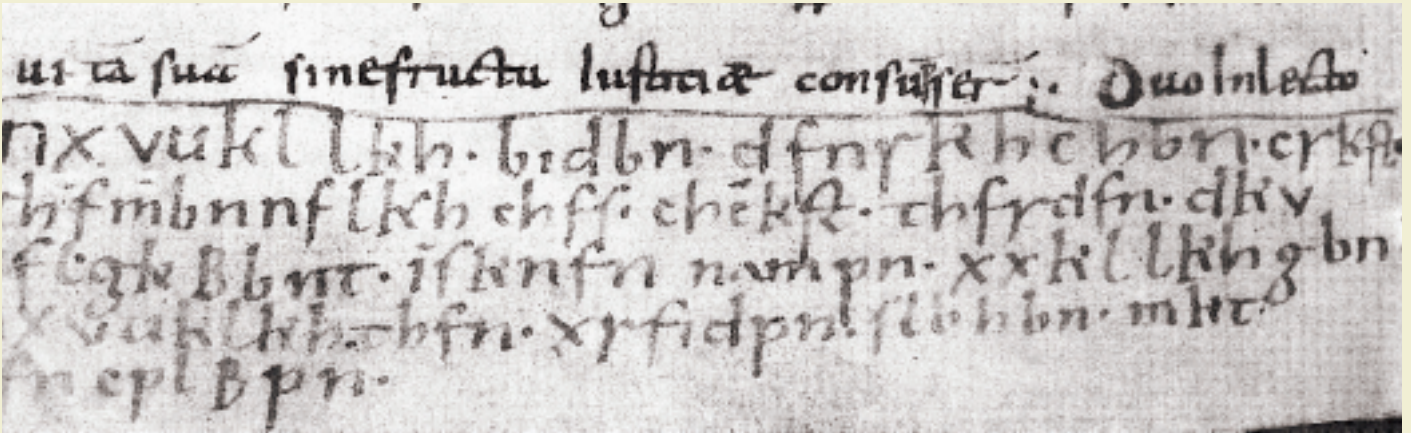 ui tā suā sinefructu Iustitiæ consūpser ⁖ Quo Inlecto
nx vukllkh. bidbn. dfnrkhchbn. crkst.
thfmbnnflkhchfſ. chēkſt. thfrdfn. dkv
flgkBbnt. īſknfn nampn. xxkllkhgbn
xvukllkh. thfn. xrfidpn. ſlbhbn. mkt
fn cplBpn.